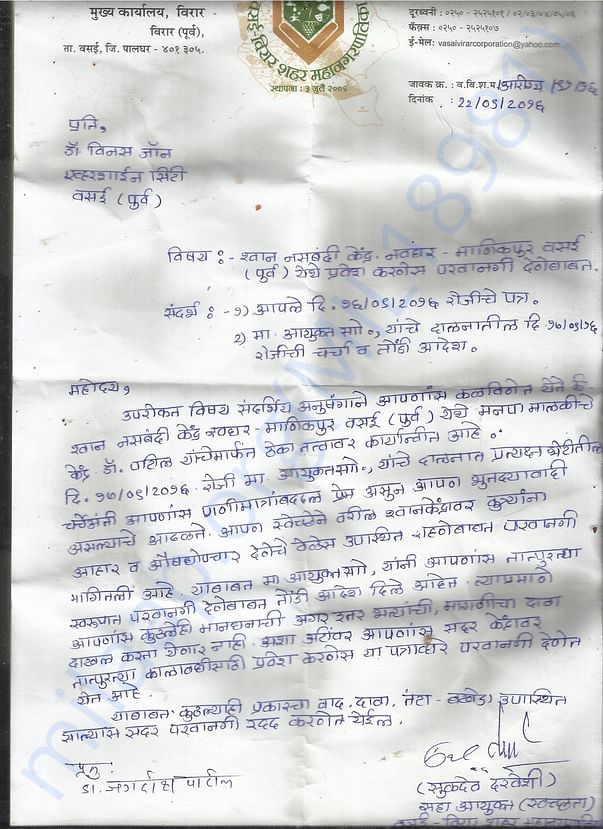 मुख्य कार्यालय, विरार
विरार (पूर्व),
ता. वसई, जि. पालघर - ४०१ ३०५.
वसई विरार शहर महानगरपालिका
स्थापना : ३ जुलै २००९
दूरध्वनी : ०२५० - २५२५१०१ / ०२/०३/०४/०५/०६
फॅक्स : ०२५० - २५२५१०७
ई-मेल: vasaivirarcorporation@yahoo.com
जावक क्र. : व.वि.श.म/आरोग्य
दिनांक : २२/०९/२०१६
प्रति,
डॉ. विनस जॉन
एव्हरशाईन सिटी
वसई (पुर्व)
विषय :- श्वान नसबंदी केंद्र नवघर - माणिकपुर वसई
(पुर्व) येथे प्रवेश करणेस परवानगी देणेबाबत.
संदर्भ :- १) आपले दि. १६/०९/२०१६ रोजीचे पत्र.
२) मा. आयुक्त सो., यांचे दालनातील दि १७/०९/१६
रोजीची चर्चा व तोंडी आदेश.
महोदय,
उपरोक्त विषय संदर्भिय अनुषंगाने आपणांस कळविणेत येते कि
श्वान नसबंदी केंद्र नवघर - माणिकपुर वसई (पुर्व) येथे मनपा मालकीचे
केंद्र डॉ. पाटील यांचेमार्फत ठेका तत्वावर कार्यान्वीत आहे.
दि. १७/०९/२०१६ रोजी मा. आयुक्तसो., यांचे दालनात प्रत्यक्ष भेटीतील
चर्चेअंती आपणांस प्राणीमात्रांबद्दल प्रेम असुन आपण भुतदयावादी
असल्याचे आढळते. आपण स्वेच्छेने वरील श्वानकेंद्रावर कुत्र्यांना
आहार व औषधोपचार देणेचे वेळेस उपस्थित राहणेबाबत परवानगी
मागितली आहे. याबाबत मा आयुक्तसो, यांनी आपणांस तात्पुरत्या
स्वरुपात परवानगी देणेबाबत तोंडी आदेश दिले आहेत. त्याप्रमाणे
आपणांस कुठलेही मानधनाची अगर इतर भत्त्यांची, मागणीचा दावा
दाखल करता येणार नाही. अशा अटींवर आपणांस सदर केंद्रावर
तात्पुरत्या कालावधीसाठी प्रवेश करणेस या पत्राव्दारे परवानगी देणेत
येत आहे.
याबाबत कुठल्याही प्रकारचा वाद, दावा, तंटा - बखेडा उपस्थित
झाल्यास सदर परवानगी रद्द करणेत येईल.
(सुकदेव दरवेशी)
सहा आयुक्त (स्वच्छता)
वसई - विरार शहर महानगरपालिका
डॉ. जगदीश पाटील